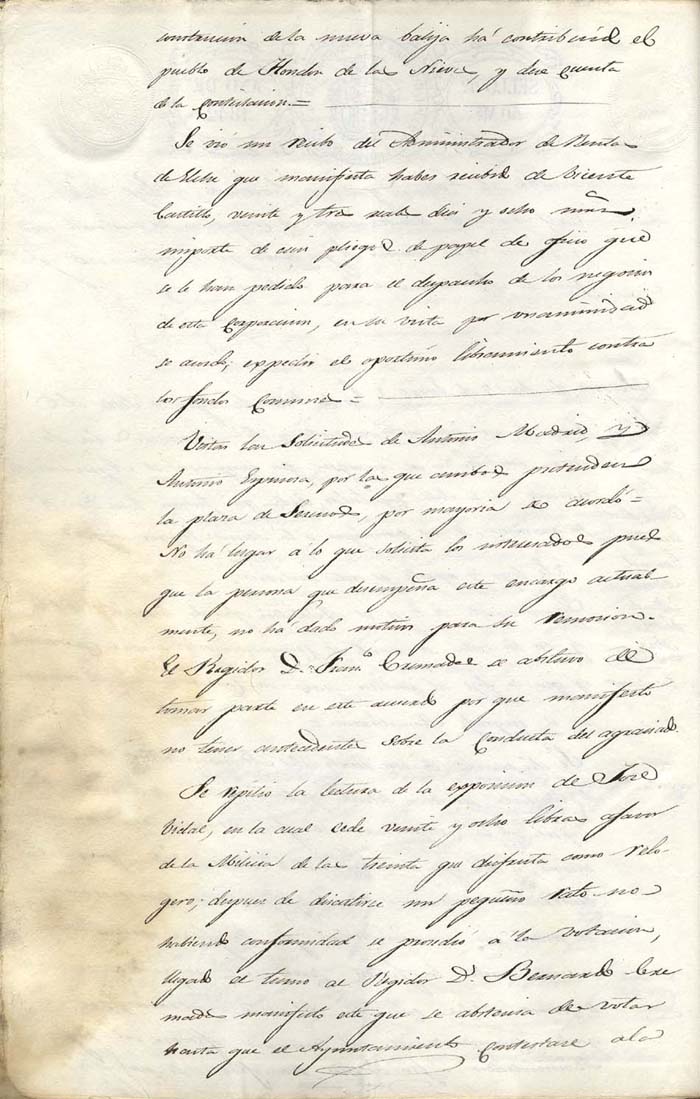 construccion de la nueva balija há contribuido el
pueblo de Hondon de las Nieves, y dese cuenta
de la Contestacion.=
Se vió un recibo del Administrador de Rentas
de Elche que manifiesta haber recibido de Vicente
Castillo, veinte y tres reales diez y ocho mrs.
importe de cien pliegos de papel de oficio que
se le han pedido para el despacho de los negocios
de esta Corporacion, en su vista por unanimidad
se acordó; expedir el oportuno libramiento contra
los fondos Comunes=
Vistas las Solicitudes de Antonio Madrid, y
Antonio Espinosa, por las que ambos pretenden
la plaza de Sereno, por mayoria se acordó=
No há lugar á lo que solicita los interesados pues
que la persona que desempeña este encargo actual-
mente, no há dado motivos para su remosion.
El Regidor Dn. Franco. Cremades se abstuvo de
tomar parte en este acuerdo por que manifestó
no tener antecedentes sobre la Conducta del agraciado.
Se repitió la lectura de la exposicion de José
Vidal, en la cual cede veinte y ocho libras afavor
de la Milicia de las treinta que disfruta como relo-
gero; despues de discutirse un pequeño rato no
habiendo conformidad se prosedió á la votacion,
llegado el turno al Regidor Dn. Bernardo Cre
mades manifestó este que se abstenia de votar
hasta que el Ayuntamiento Contestare ala